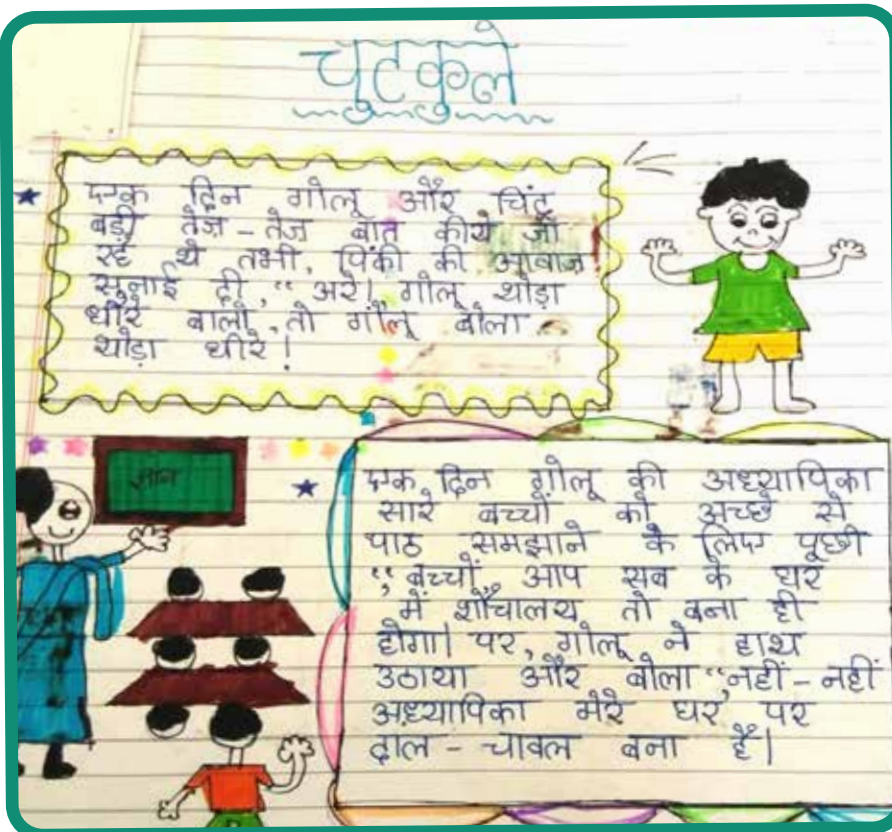 चुटकुले
एक दिन गोलू और चिंटू
बड़ी तेज़-तेज़ बात कीये जा
रहे थे तभी, पिंकी की आवाज़
सुनाई दी, “अरे! गोलू थोड़ा
धीरे बोलो, तो गोलू बोला
थोड़ा धीरे!
ज्ञान
एक दिन गोलू की अध्यापिका
सारे बच्चों को अच्छे से
पाठ समझाने के लिए पूछी
“बच्चों, आप सब के घर
में शौचालय तो बना ही
होगा। पर, गोलू ने हाथ
उठाया और बोला “नहीं-नहीं
अध्यापिका मेरे घर पर
दाल-चावल बना है।